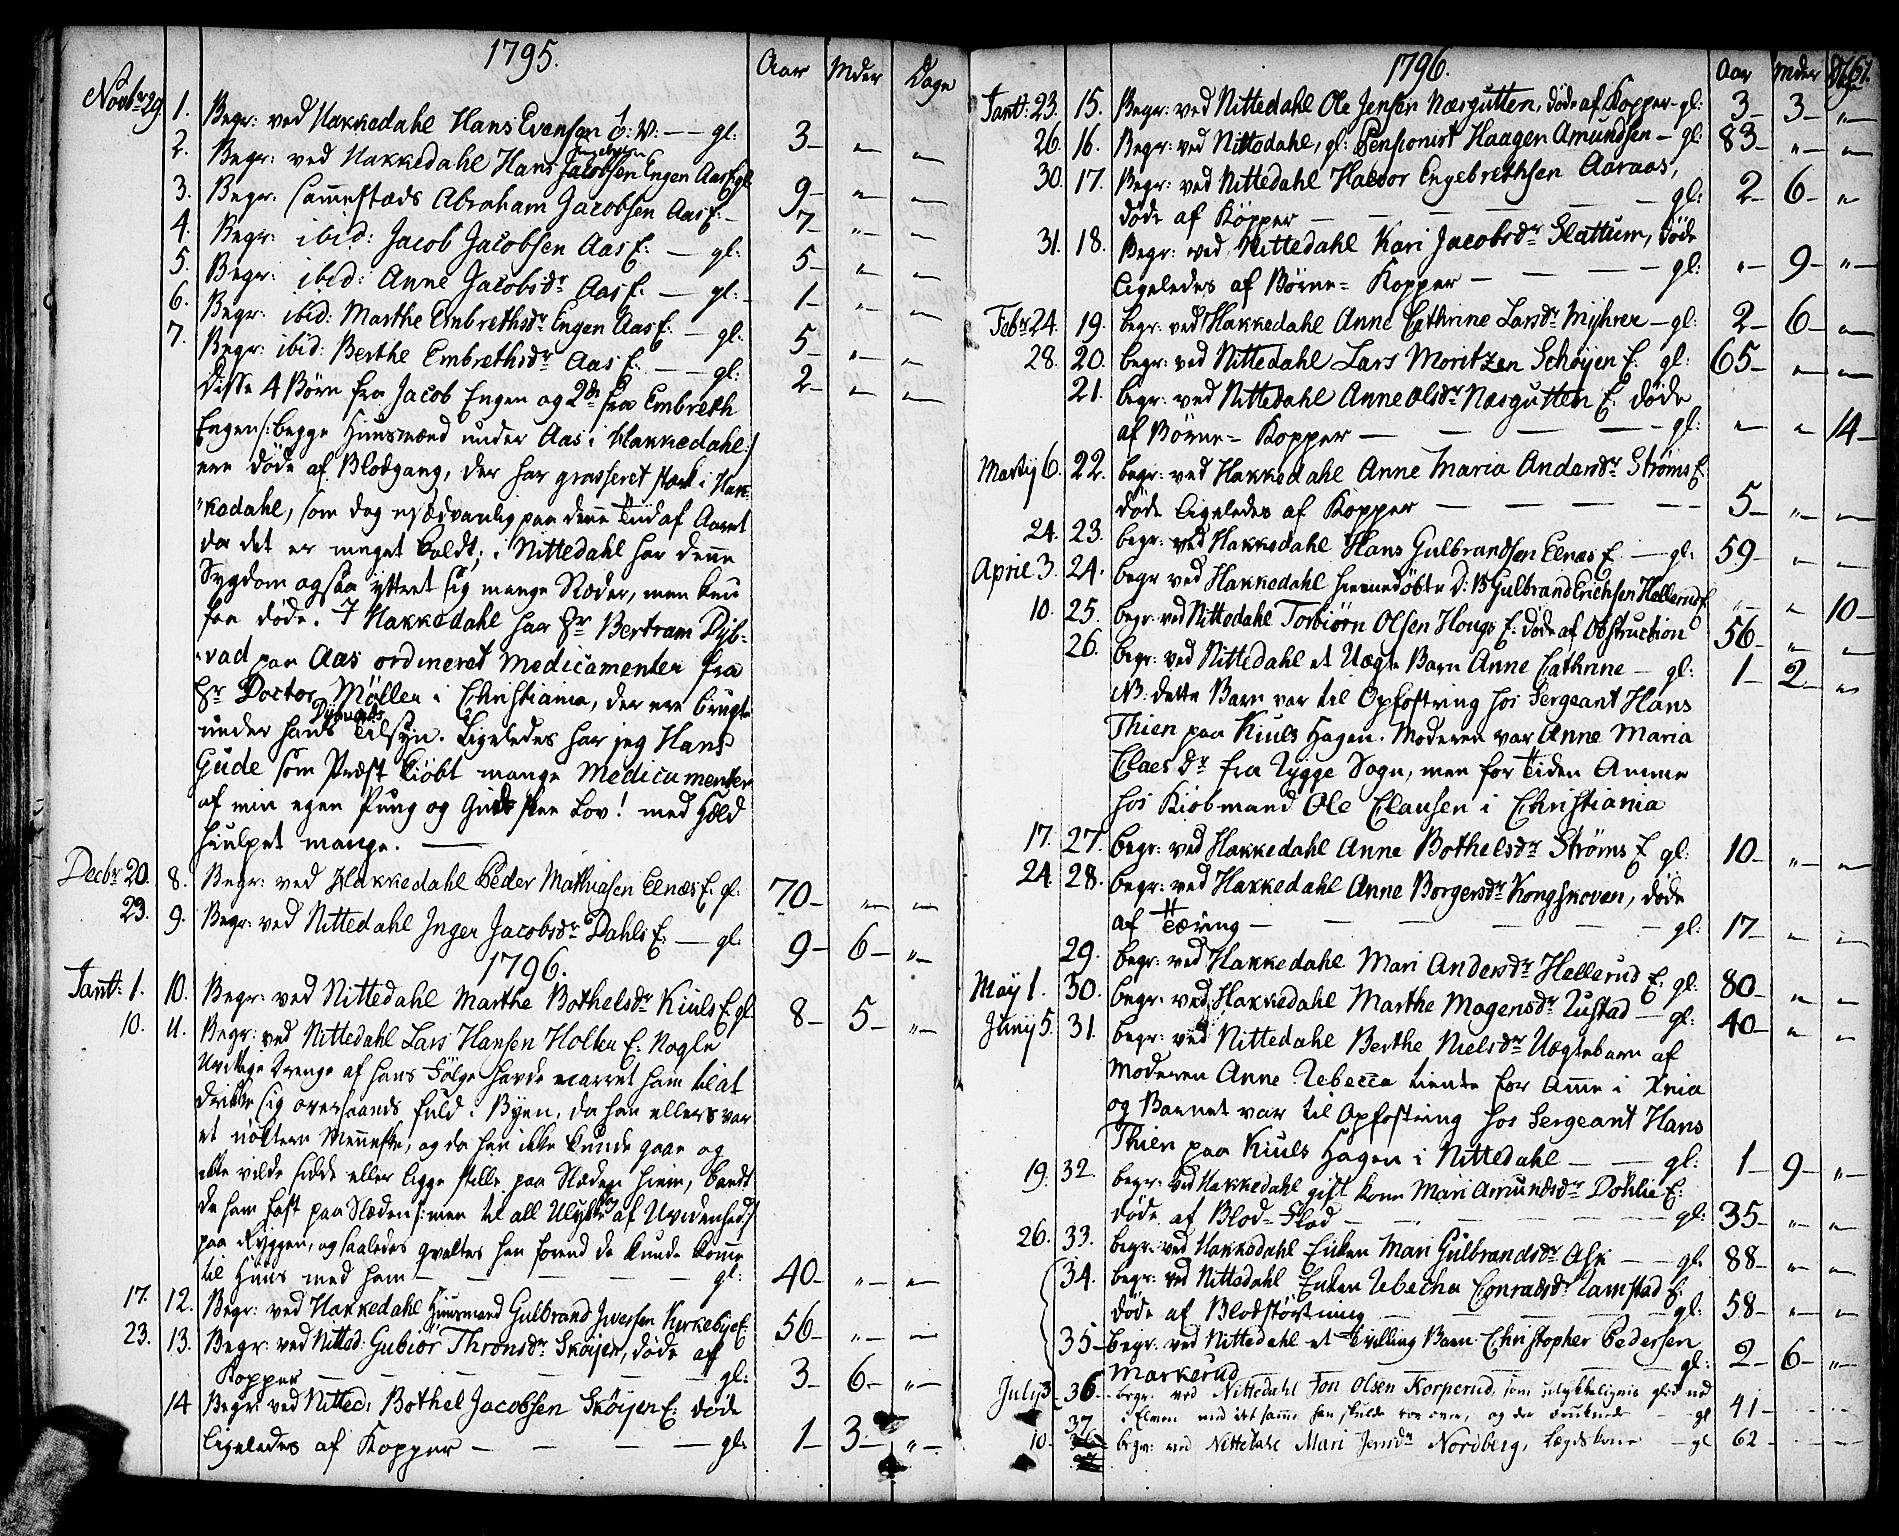 1795.
Aar Mder Dage
Novbr 29. 1. Begr: ved Hakkedahl Hans Evensen Ö: V. — — gl: 3 — „ — „ —
2. Begr: ved Hakkedahl Hans Jacobsen Engen Aas E. gl: 9 — „ — „ —
3. Begr: sammestæds Abraham Jacobsen Aas E. — 7 — „ — „ —
4. Begr: ibid: Jacob Jacobsen Aas E. — gl: 5 — „ — „ —
5. Begr: ibid: Anne Jacobsdr Aas E. — gl: 1 — „ — „ —
6. Begr: ibid: Marthe Embrethsdr Engen Aas E. — gl: 5 — „ — „ —
7. Begr: ibid: Berthe Embrethsdr Aas E. — gl: 2 — „ — „ —
Disse 4 Børn fra Jacob Engen og 2de fra Embreth
Engen /: begge Huusmænd under Aas i Hakkedahl :/
ere døde af Blodgang, der har grasseret stærk i Hak-
kedahl, som dog usædvanlig paa denne Tiid af Aaret
da det er meget koldt; i Nittedahl har denne
Sygdom ogsaa yttret sig mange Stæder, men kun
faa døde. I Hakkedahl har Hr Bertram Dyb-
vad paa Aas ordineret Medicamenter fra
Hr Doctor Møller i Christiania, der ere brugte
under hans Dybvads Tilsyn. Ligeledes har jeg Hans
Gude som Præst kiöbt mange Medicamenter
af min egen Pung og Gud skee Lov! med Held
hiulpet mange. —
Decbr 20. 8. Begr: ved Hakkedahl Peder Mathiasen Elnæs E. gl: 70 — „ — „ —
23. 9. Begr: ved Nittedahl Inger Jacobsdr Dahls E. — gl: 9 — 6 — „ —
1796.
Janr: 1. 10. Begr: ved Nittedahl Marthe Bothelsdr Kiuls E. gl: 8 — 5 — „ —
10. 11. Begr: ved Nittedahl Lars Hansen Holter E. Nogle
Uvittige Drenge af hans Fölge havde narret ham til at
drikke sig overhaands fuld i Byen, da han ellers var
et nöktern Menneske, og da han ikke kunde gaae og
ikke vilde sidde eller ligge stille paa Slæden hiem, bandt
de ham fast paa Slæden /: men til all Ulykke dog af Uvidenhed :/
paa Ryggen, og saaledes qvaltes han forend de kunde komme
til Huus med ham — — — — gl: 40 — „ — „ —
17. 12. Begr: ved Hakkedahl Huusmand Gulbrand Iversen Kirkebye E. 56 — „ — „ —
23. 13. Begr: ved Nitted: Gubiör Thronsdr Skøyen, døde af
Kopper — — — — gl: 3 — 6 — „ —
14 Begr: ved Nitted: Bothel Jacobsen Skøyen E. døde
ligeledes af Kopper — — — — gl: 1 — 3 — „ —
1796.
Aar Mder Dage
Janr: 23. 15. Begr: ved Nittedahl Ole Jensen Næsgutten, døde af Kopper — gl: 3 — 3 — „ —
26. 16. Begr: ved Nittedahl, gl: Pensionist Haagen Amundsen — gl: 83 — „ — „ —
30. 17. Begr: ved Nittedahl Halvor Engebrethsen Aaraas,
døde af Köpper — — — — gl: 2 — 6 — „
31. 18. Begr: ved Nittedahl Kari Jacobsdr Slattum, døde
Ligeledes af Börne-Kopper — — — gl: „ — 9 — „ —
Febr 24. 19. begr: ved Hakkedahl Anne Cathrine Larsdr Myhrer — gl: 2 — 6 — „ —
28. 20. begr: ved Nittedahl Lars Moritzen Schøyen E. gl: 65 — „ — „ —
21. begr: ved Nittedahl Anne Olsdr Næsgutten E. døde
af Börne-Kopper — — — — gl: „ — „ 14 —
Martij 6. 22. begr: ved Hakkedahl Anne Maria Andersdr Strøms E.
døde Ligeledes af Kopper — — — — 5 — „ — „ —
24. 23. begr: ved Hakkedahl Hans Gulbrandsen Elnæs E. — gl: 59 — „ — „ —
April 3. 24. begr ved Hakkedahl hiemmedöbte D: B Gulbrand Erichsen Hellerud E. „ — „ 10 —
10. 25. begr: ved Nittedahl Torbiörn Olsen Hougs E. döde af Obstruction 56 — „ — „ —
26. begr: ved Nittedahl et Uægte Barn Anne Cathrine — gl: 1 — 2 — „
NB: dette Barn var til Opfostring hos Sergeant Hans
Thien paa Kiuls Hagen. Moderen var Anne Maria
Claesdr fra Rygge Sogn, men for Tiden Amme
hos Kiöbmand Ole Clausen i Christiania
17. 27. begr: ved Hakkedahl Anne Bothelsdr Strøms E gl: 10 — „ — „ —
24 28. begr: ved Hakkedahl Anne Borgersdr Kongskoven, døde
af Tæring — — — — gl: 17 — „ — „ —
29. begr: ved Hakkedahl Mari Andersdr Hellerud E. gl: 80 — „ — „ —
May 1. 30. begr: ved Hakkedahl Marthe Mogensdr Rustad — gl: 40 — „ — „ —
Junij 5. 31. begr: ved Nittedahl Berthe Nielsdr Uægtebarn af
Moderen Anne Rebecca tiente for Amme i Xnia
og Barnet var til Opfostring hos Sergeant Hans
Thien paa Kiuls Hagen i Nittedahl — — gl: 1 — 9 — „ —
19. 32. begr: ved Hakkedahl gift Kone Mari Amundsdr Döhlie E:
døde af Blod-Flod — — — — gl: 35 — „ — „ —
26. 33. begr: ved Hakkedahl Enken Mari Gulbrandsdr Aas — gl: 88 — „ — „ —
34. begr: ved Nittedahl Enken Rebecha Conradsdr Ramstad E.
døde af Blodstyrtning — — — gl: 58 — „ — „ —
35 — begr: ved Nittedahl et Tvilling Barn Christopher Pedersen
Markerud — — — — gl: 2 — 6 — „ —
July 3 — 36 — begr: ved Nittedahl Jon Olsen Korperud, som ulykkeligviis gled ned
i Elven med det samme han skulde roe over, og der druknede — gl 41 — — —
10 — 37 begr: ved Nittedahl Mari Jensdr Nordberg, Lægdskone — gl 62 — — —